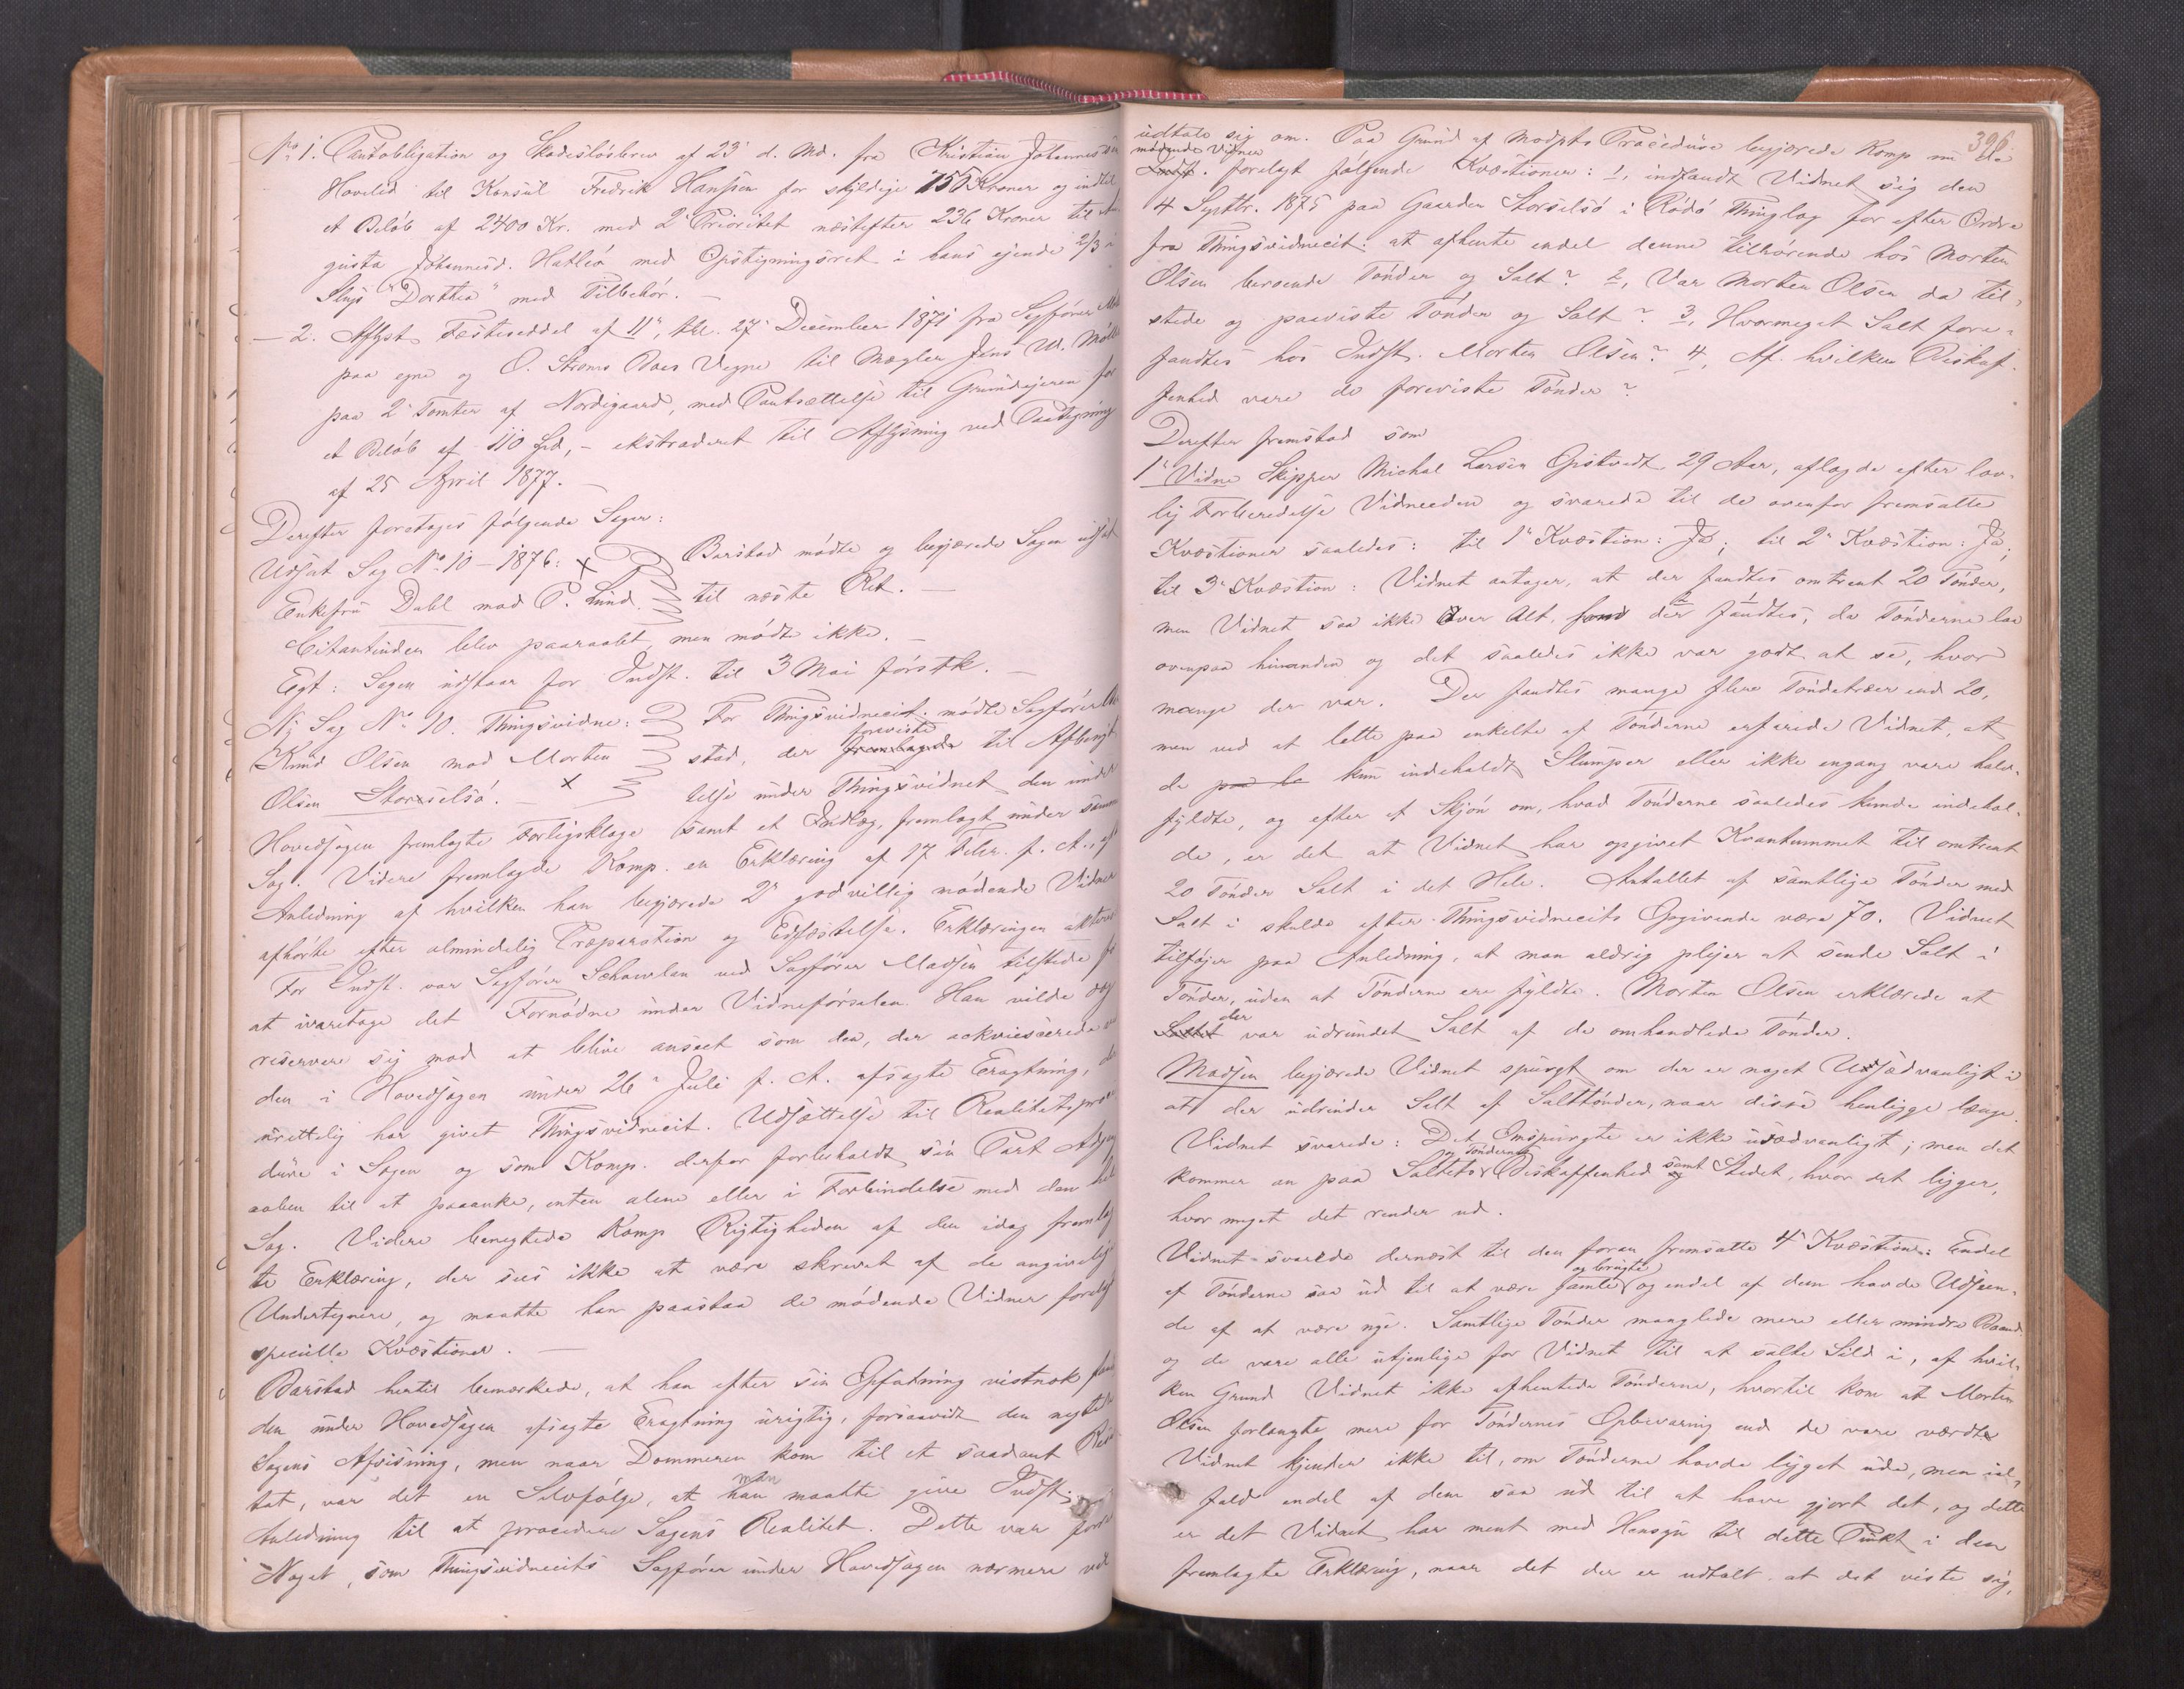 No 1. Pantobligation og Skadesløsbrev af 23 d. Md. fra Kristian Johannessen
Hovelid til Konsul Fredrik Hansen for skyldige 150 Kroner og indtil
et Beløb af 2400 Kr. med 2 Prioritet næstefter 236 Kroner til Au-
gusta Johannesd. Hatleø med Opstigningsret i hans ejende 2/3 i
Slup "Dorthea" med Tilbehør. —
— 2. Aflyst Fæsteseddel af 11, thl. 27 December 1871 fra Sagfører
paa egne og O. Strøms Boes Vegne til Mægler Jens M. Møller
paa 2 Tomter af Nordigaard, med Pantsættelse til Grundejeren for
et Beløb af 110 Spd, - ekstraderet til Aflysning ved Paategning
af 25 April 1877. —
Derefter foretoges følgende Sager:
Udsat Sag No 10 - 1876: Barstad mødte og begjærede Sagen udsat
Enkefru Dahl mod P. Lund. til næste Ret. —
Citantinden blev paaraabt, men mødte ikke. —
Egt: Sagen udstaar for Indst. til 3 Mai førstk. —
Ny Sag No 10. Thingsvidne: For Thingsvidnecit. mødte Sagfører Bar-
foreviste
Knud Olsen mod Morten stad, der fremlagde til Afbenyt-
Olsen Storselsø. — telse under Thingsvidnet den under
Hovedsagen fremlagte Forligsklage samt et Indlæg, fremlagt under samme
Sag. Videre fremlagde Komp. en Erklæring af 17 Febr. f. A., i
Anledning af hvilken han begjærede 2 godvillig mødende Vidner
afhørte efter almindelig Præparation og Edfæstelse. Erklæringen akteres
For Indst. var Sagfører Schavlan ved Sagfører Madsen tilstede for
at ivaretage det Fornødne under Vidneførselen. Han vilde dog
reservere sig mod at blive anseet som den, der ackviescerede ved
den i Hovedsagen under 26 Juli f. A. afsagte Eragtning, der
urettelig har givet Thingsvidnecit. Udsættelse til Realitetsproce-
dure i Sagen og som Komp. derfor forbeholdt sin Part Adgang
aaben til at paaanke, enten alene eller i Forbindelse med den hele
Sag. Videre benegtede Komp Rigtigheden af den idag fremlag-
te Erklæring, der sees ikke at være skrevet af de angivelige
Undertegnere, og maatte han paastaa de mødende Vidner forelagt
specielle Kvæstioner. —
Barstad hertil bemærkede, at han efter sin Opfatning vistnok fandt
den under Hovedsagen afsagte Eragtning urigtig, forsaavidt den negtede
Sagens Afvisning, men naar Dommeren kom til et saadant Resul-
man
tat, var det en Selvfølge, at han maatte give Indst.
Anledning til at procedere Sagens Realitet. Dette var
Noget, som Thingsvidnecits Sagfører under Hovedsagen nærmere vil
396
udtale sig om. Paa Grund af Modpts Procedure begjærede Komp nu de
mødende Vidner
Indst. forelagt følgende Kvæstioner: 1, indfandt Vidnet sig den
4 Septbr. 1875 paa Gaarden Storselsø i Rødø Thinglag for efter Ordre
fra Thingsvidnecit: at afhente endel denne tilhørende hos Morten
Olsen beroende Tønder og Salt? 2, Var Morten Olsen da til-
stede og paaviste Tønder og Salt? 3, Hvormeget Salt fore-
fandtes hos Indst. Morten Olsen? 4, Af hvilken Beskaf-
fenhed vare de foreviste Tønder?
Derefter fremstod som
1 Vidne Skipper Michal Larsen Opstvedt 29 Aar, aflagde efter lov-
lig Forberedelse Vidneeden og svarede til de ovenfor fremsatte
Kvæstioner saaledes: til 1 Kvæstion: Ja; til 2 Kvæstion: Ja;
til 3 Kvæstion: Vidnet antager, at der fandtes omtrent 20 Tønder,
men Vidnet saa ikke over Alt, som der fandtes, da Tønderne laa
ovenpaa hinanden og det saaledes ikke var godt at se, hvor
mange der var. Der fandtes mange flere Tøndetræer end 20,
men ved at lette paa enkelte af Tønderne erfarede Vidnet, at
de paa le kun indeholdt Slumper eller ikke engang vare halv-
fyldte, og efter et Skjøn om, hvad Tønderne saaledes kunde indehol-
de, er det at Vidnet har opgivet Kvantummet til omtrent
20 Tønder Salt i det Hele. Antallet af samtlige Tønder med
Salt i skulde efter Thingsvidnecits Opgivende være 70. Vidnet
tilføjer paa Anledning, at man aldrig plejer at sende Salt i
Tønder, uden at Tønderne ere fyldte. Morten Olsen erklærede at
der
Saltet var udrundet Salt af de omhandlede Tønder.
Madsen begjærede Vidnet spurgt om der er noget Usædvanligt i
at der udrinder Salt af Salttønder, naar disse henligge længe.
Vidnet svarede: Det Omspurgte er ikke usædvanligt; men det
og Tøndernes
kommer an paa Saltets Beskaffenhed samt Stedet, hvor det ligger,
hvor meget det render ud.
Vidnet svarede dernæst til den foran fremsatte 4 Kvæstion: Endel
og brugte
af Tønderne saa ud til at være gamle og endel af dem havde Udseen-
de af at være nye. Samtlige Tønder manglede mere eller mindre Baand
og de vare alle utjenlige for Vidnet til at salte Sild i, af hvil-
ken Grund Vidnet ikke afhentede Tønderne, hvortil kom at Morten
Olsen forlangte mere for Tøndernes Opbevaring end de vare værdte
Vidnet kjender ikke til, om Tønderne havde ligget ude, men ial-
fald endel af dem saa ud til at have gjort det, og dette
er det Vidnet har ment med Hensyn til dette Punkt i den
fremlagte Erklæring, naar det der er udtalt at det viste sig,